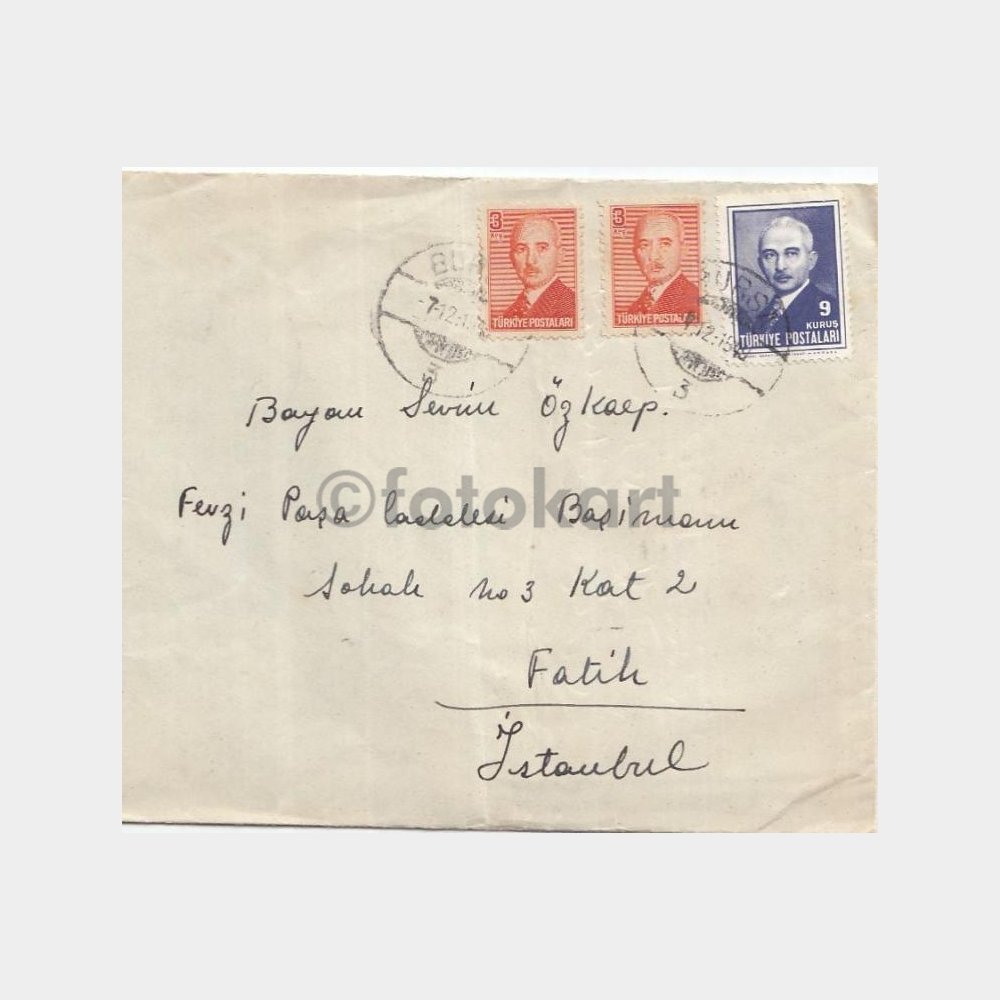 3
KRŞ
TÜRKİYE POSTALARI
3
KRŞ
TÜRKİYE POSTALARI
9
KURUŞ
TÜRKİYE POSTALARI
BURS
-7.12.1
3
BURSA
7.12.19
3
Bayan Sevim Özkalp.
Fevzi Paşa Caddesi Başimam
Sokak No 3 Kat 2
Fatih
İstanbul
©fotokart